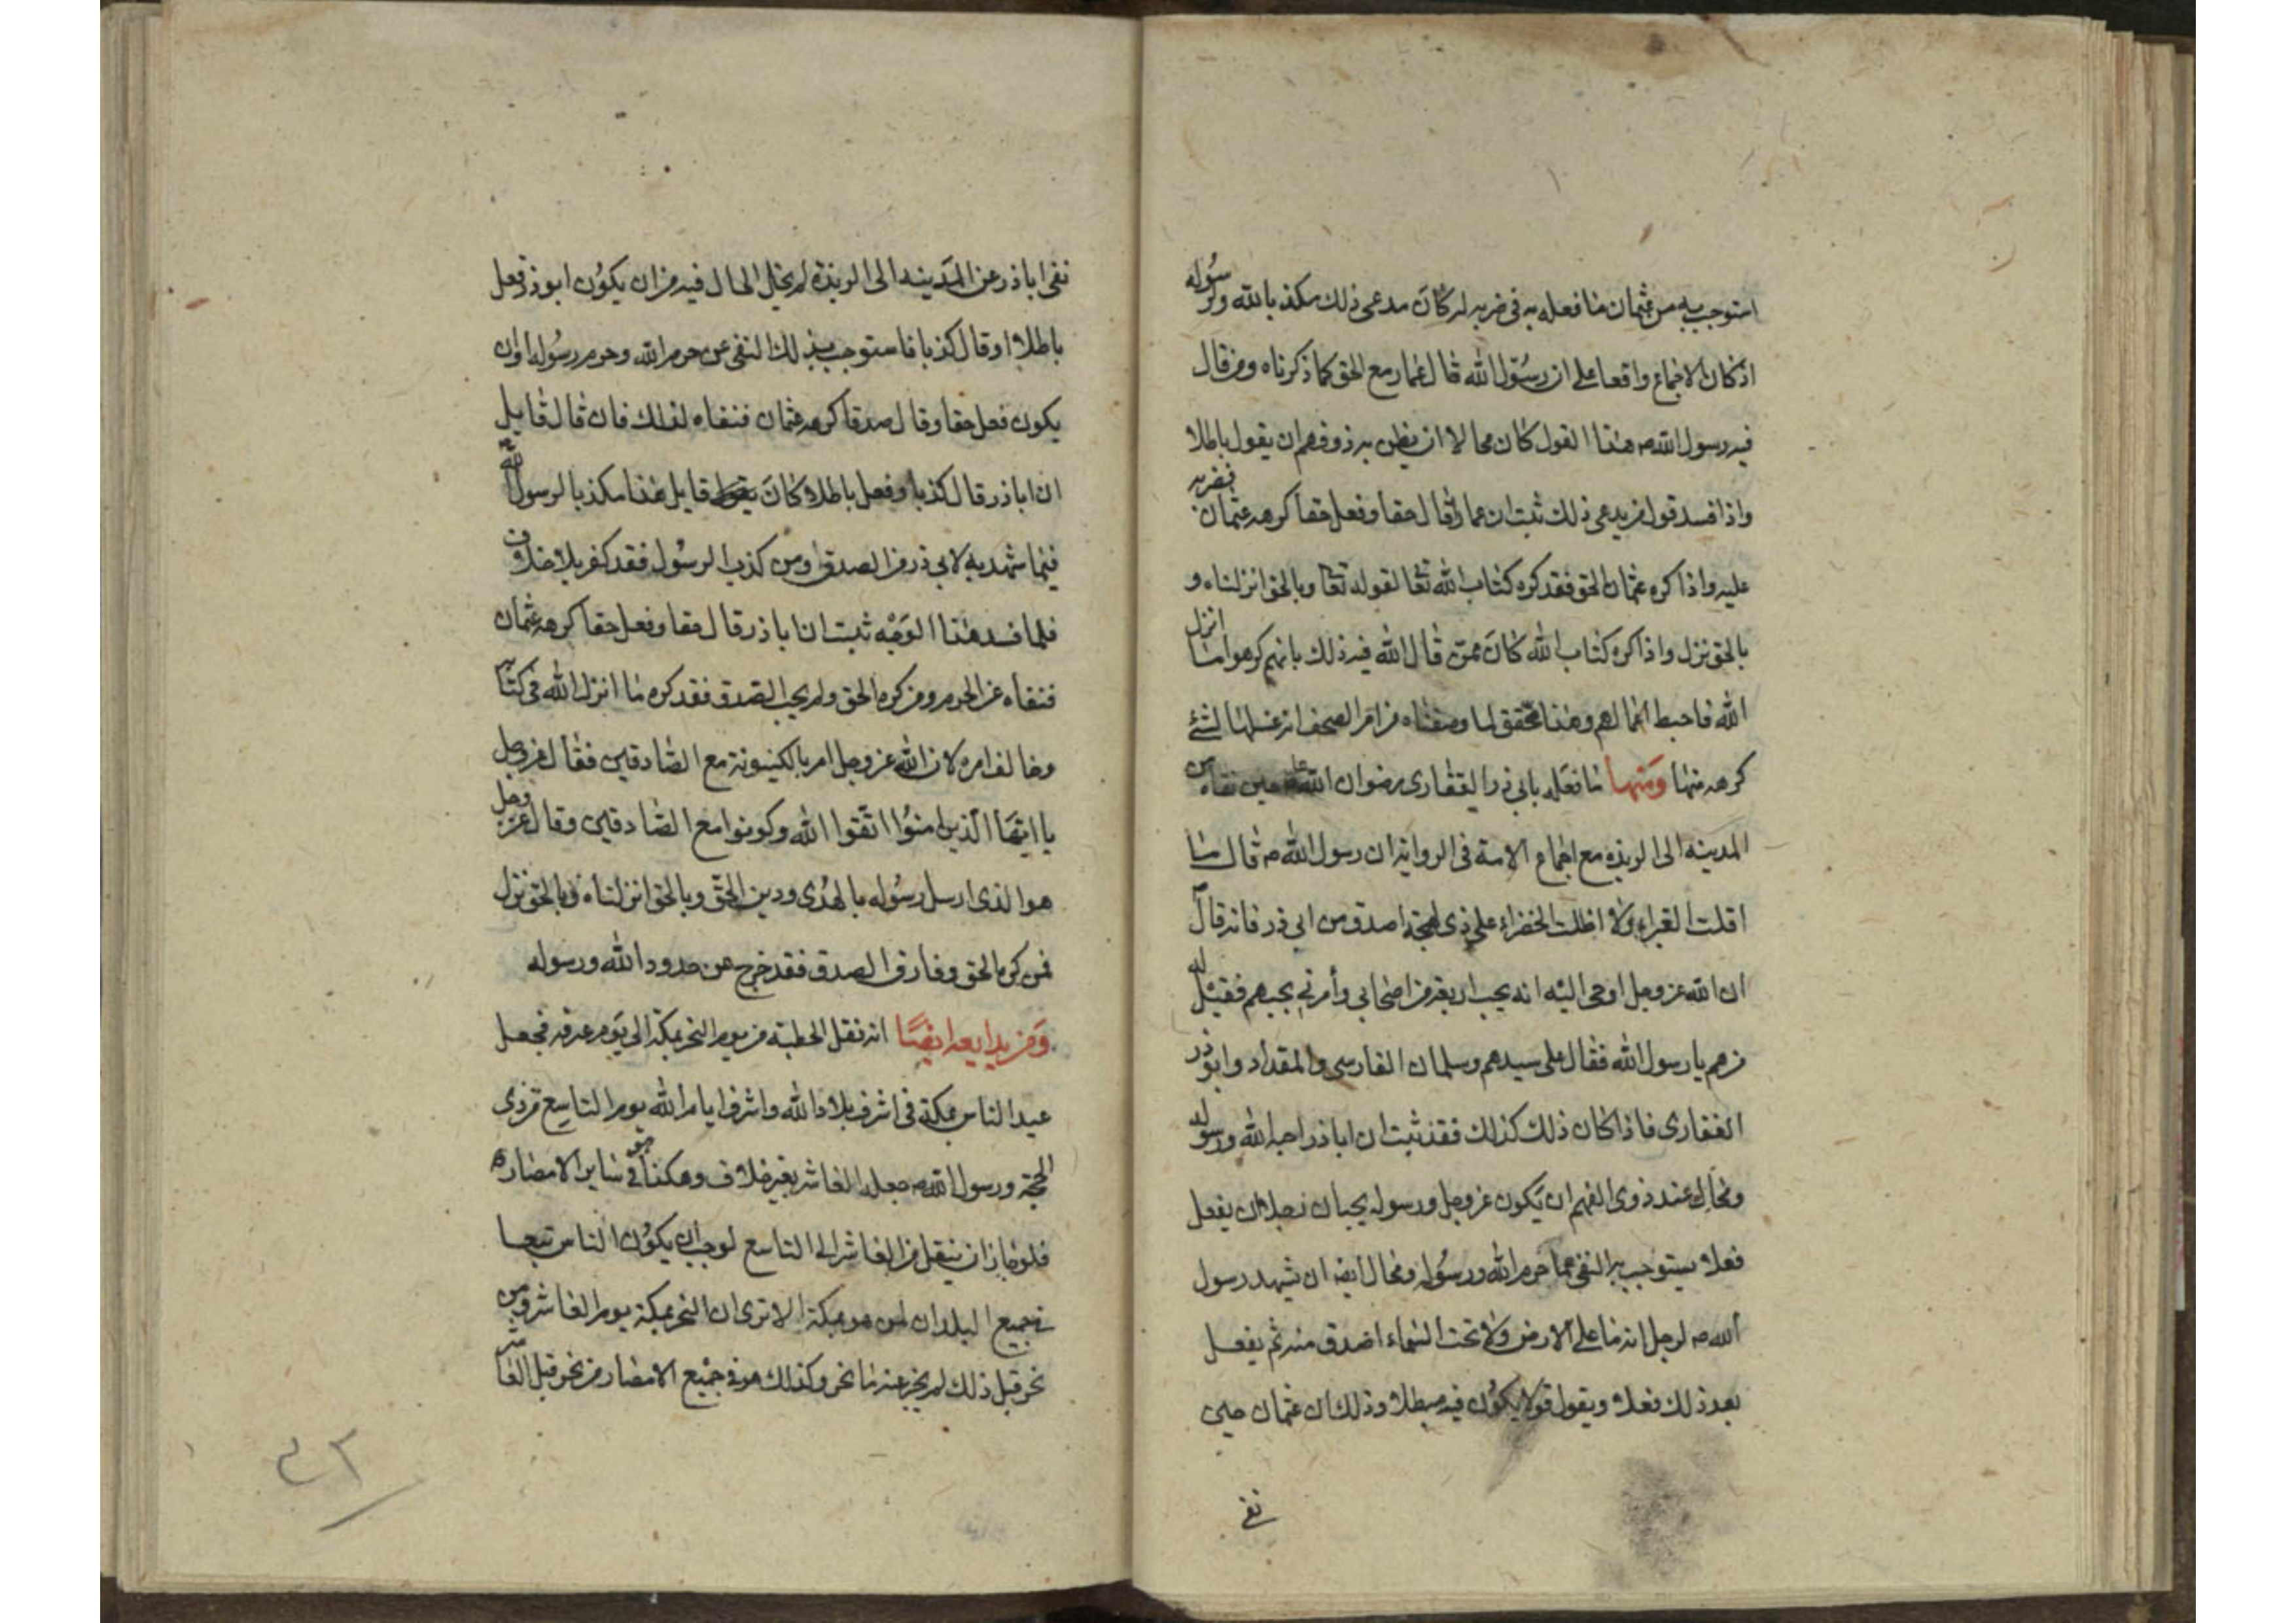 استوجب به من عثمان ما فعله به في ضربه لر كان مدعى ذلك مكذبا بالله ولرسوله
اذ كان الاجماع واقعا على ان رسول الله قال عمار مع الحق كما ذكرناه ومن قال
فيه رسول الله ص هذا القول كان محالا ان يظن به ذو فهم ان يقول باطلا
واذا فسد قول من يدعى ذلك ثبت ان عمارا قال حقا وفعل حقا كرهه عثمان فضربه
عليه واذا كره عثمان الحق فقد كره كتاب الله تعا لقوله تعا وبالحق انزلناه و
بالحق نزل واذا كره كتاب الله كان ممن قال الله فيه ذلك بانهم كرهوا ما انزل
الله فاحبط اعمالهم وهذا محقق لما وصفناه من امر الصحف انه غسلها لشئ
كرهه منها ومنها ما فعله بابي ذر الغفارى رضوان الله عليه حين نفاه من
المدينه الى الربذه مع اجماع الامة في الرواية ان رسول الله ص قال ما
اقلت الغبراء ولا اظلت الخضراء على ذى لهجة اصدق من ابي ذر فانه قال
ان الله عز وجل اوحى اليه انه يحب اربعة من اصحابي وأمرني بحبهم فقيل له
من هم يا رسول الله فقال على سيدهم وسلمان الفارسى والمقداد وابوذر
الغفارى فاذا كان ذلك كذلك فقد ثبت ان اباذر احبه الله ورسوله
ومحال عند ذوى الفهم ان يكون عز وجل ورسوله يحبان رجلا ان يفعل
فعلا يستوجب به النفى عما حرم الله ورسوله ومحال ايضا ان يشهد رسول
الله ص لرجل انه ما على الارض ولا تحت السماء اصدق منه ثم يفعل
بعد ذلك فعلا ويقول قولا يكون فيه مبطلا وذلك ان عثمان حين
نفى
نفى اباذر عن المدينه الى الربذة لم يخل الحال فيه من ان يكون ابوذر فعل
باطلا او قال كذبا فاستوجب بذلك النفى عن حرم الله وحرم رسوله او ان
يكون فعل حقا وقال صدقا كرهه عثمان فنفاه لذلك فان قال قايل
ان اباذر قال كذبا وفعل باطلا كان قايل هذا مكذبا لرسول الله
فيما شهد به لابي ذر من الصدق ومن كذب الرسول فقد كفر بلا خلاف
فلما فسد هذا الوجه ثبت ان اباذر قال حقا وفعل حقا كرهه عثمان
فنفاه عن الحرم ومن كره الحق ولم يحب الصدق فقد كره ما انزل الله في كتابه
وخالف امره لان الله عز وجل امر بالكينونة مع الصادقين فقال عز وجل
يا ايها الذين امنوا اتقوا الله وكونوا مع الصادقين وقال عز وجل
هو الذى ارسل رسوله بالهدى ودين الحق وبالحق انزلناه وبالحق نزل
فمن كره الحق وفارق الصدق فقد خرج عن حدود الله ورسوله
ومن بدايعه ايضا انه نقل الخطبة من يوم النحر بمكة الى يوم عرفه فجعل
عيد الناس بمكة في اشرف بلاد الله واشرف ايام الله يوم التاسع من ذى
الحجة ورسول الله ص جعله العاشر بغير خلاف وهكذا هو في ساير الامصار
فلو جاز ان ينقل من العاشر الى التاسع لوجب ان يكون الناس تبعا
في جميع البلدان لمن هو بمكة الا ترى ان النحر بمكة يوم العاشر ومن
نحر قبل ذلك لم يجز عنه ما نحر وكذلك هو في جميع الامصار من نحر قبل العاشر